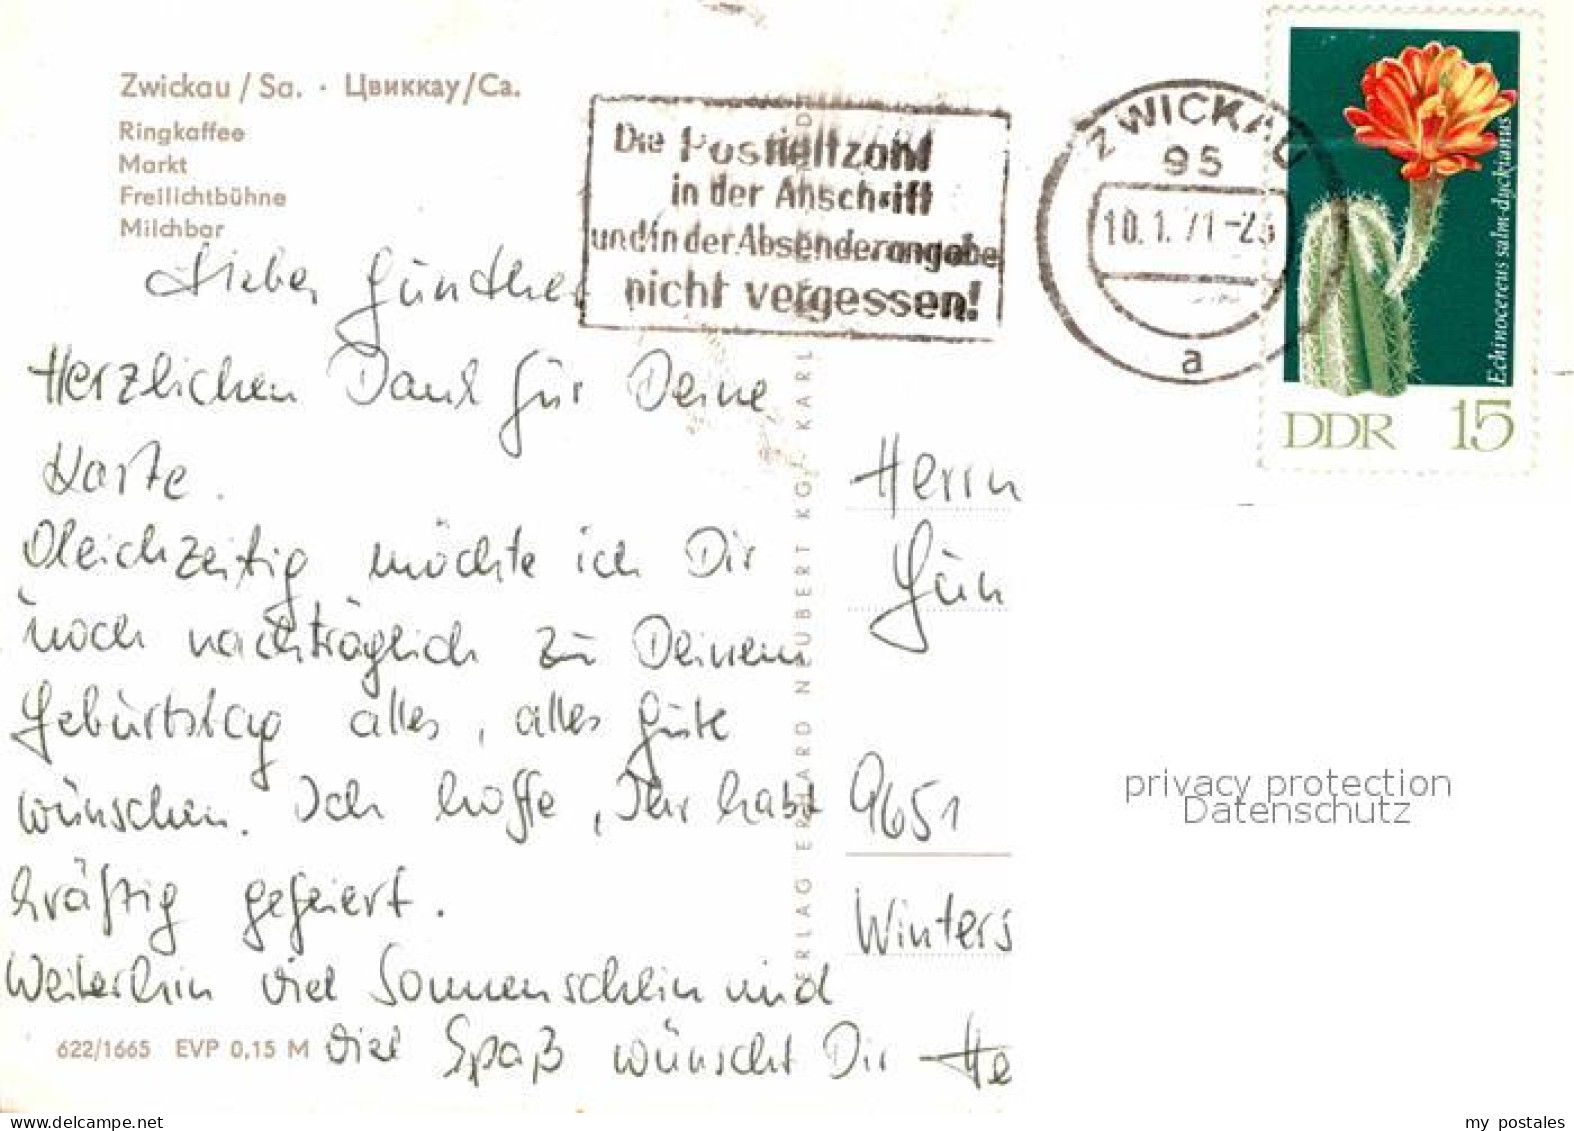 Zwickau / Sa. · Цвиккау/Са.
Ringkaffee
Markt
Freilichtbühne
Milchbar
Die Postleitzahl
in der Anschrift
und in der Absenderangabe
nicht vergessen!
ZWICKAU
95
10.1.71-23
a
Echinocereus salm-dyckianus
DDR 15
Lieber Günther
Herzlichen Dank für Deine
Karte.
Gleichzeitig möchte ich Dir
noch nachträglich zu Deinem
Geburtstag alles, alles Gute
wünschen. Ich hoffe, Ihr habt
kräftig gefeiert.
Weiterhin viel Sonnenschein und
viel Spaß wünscht Dir He
622/1665 EVP 0,15 M
VERLAG ERHARD NEUBERT KG, KARL
Herrn
Gün
9651
Winters
privacy protection
Datenschutz
my postales